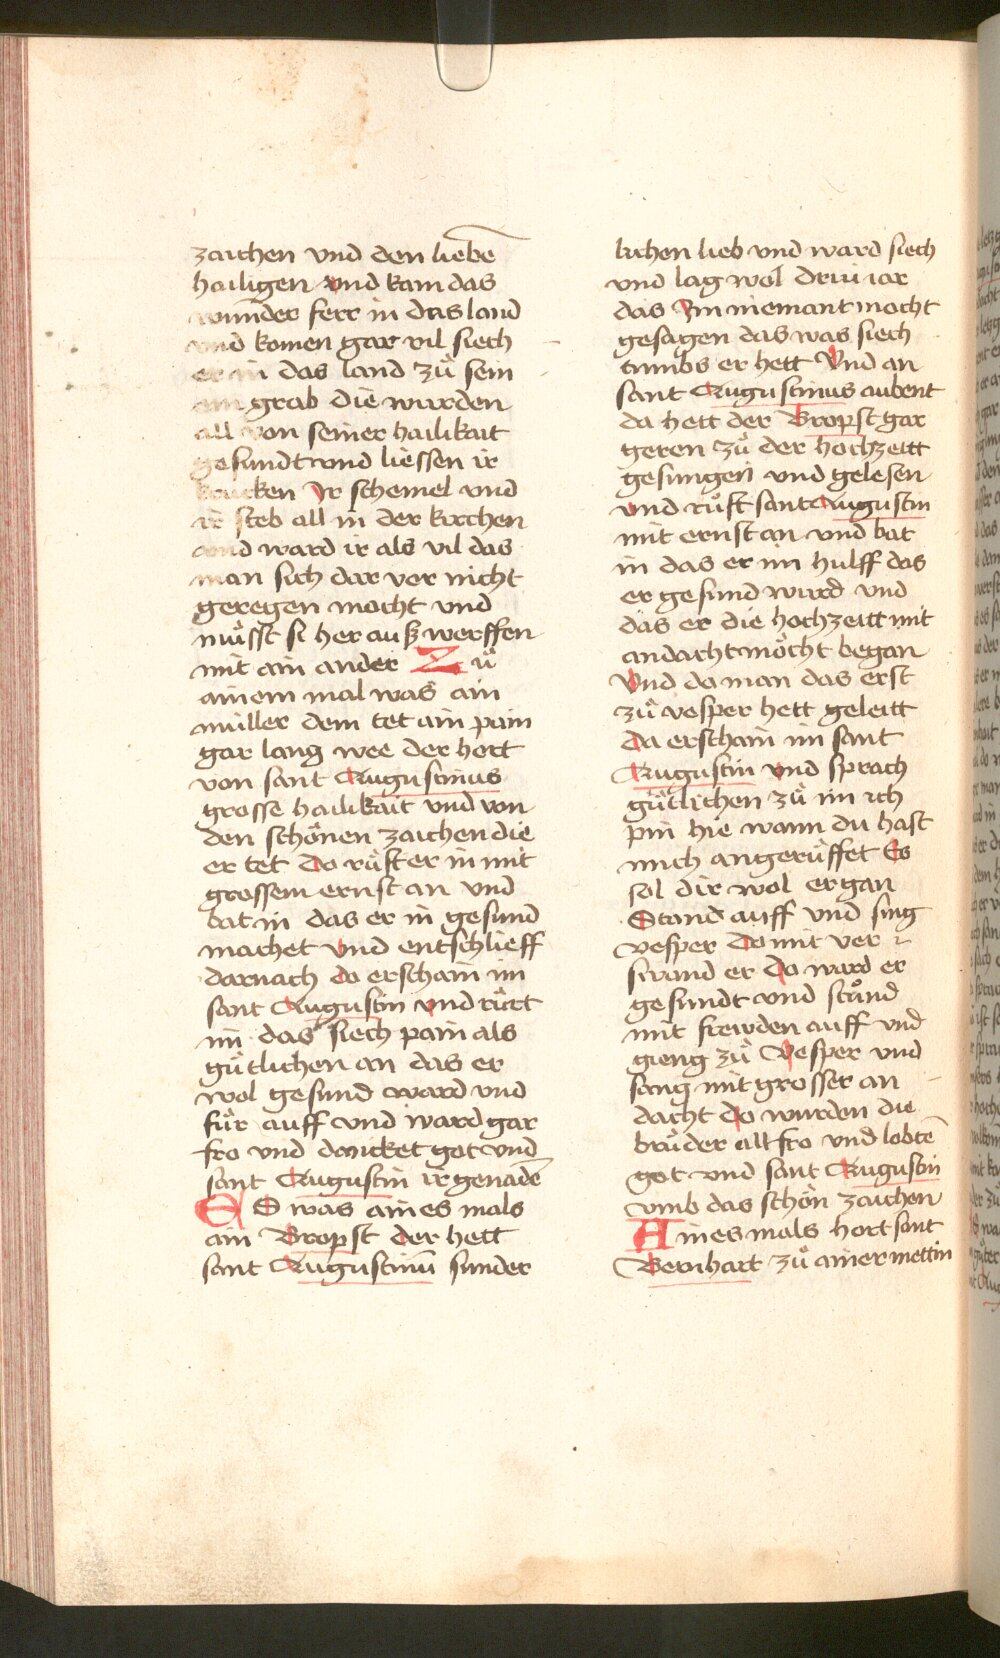 zaichen vnd den liebē
hailigen vnd kam das
wunder ferr in das land
vnd komen gar vil siech
er in das land zů sein
em grab die wurden
all von seiner hailikait
gesundt vnd liessen ir
krucken Ir schemel vnd
ir steb all in der kirchen
vnd ward ir als vil das
man sich dar vor nicht
geregen mocht vnd
můsst si her auß werffen
mit ain ander Zů
ainem mal was ain
müller dem tet ain pain
gar lang wee der hort
von sant Augustinus
grosse hailikait vnd von
den schönen zaichen die
er tet Do růft er in mit
grossem ernst an vnd
bat in das er in gesund
machet vnd entschlieff
darnach do erscham im
sant Augustin vnd růrt
im das siech pain als
gütlichen an das er
wol gesund ward vnd
für auff vnd ward gar
fro vnd dancket got vnd
sant Augustin ir genadē
Es was ains mals
ain Bropst der hett
sant Augustinū sunder
lichen lieb vnd ward siech
vnd lag wol driu iar
das Im niemant mocht
gesagen das was siech
tumbs er hett Vnd an
sant Augustinus aubent
da hett der Bropst gar
geren zů der hochzeitt
gesungen vnd gelesen
vnd růft sant Augustin
mit ernst an vnd bat
in das er im hulff das
er gesund wurd vnd
das er die hochzeitt mit
andacht möcht began
Vnd do man das erst
zů vesper hett geleitt
Da erscham im sant
Augustin vnd sprach
gütlichen zů im ich
pin hie wann du hast
mich angerůffet Es
sol dir wol ergan
Stand auff vnd sing
vesper Do mit ver
swand er Do ward er
gesundt vnd stůnd
mit frewden auff vnd
gieng zů Vesper vnd
sang mit grosser an
dacht Do wurden die
brůder all fro vnd lobtē
got vnd sant Augustin
vmb das schön zaichen
Aines mals hort sant
Bernhart zů ainer mettin